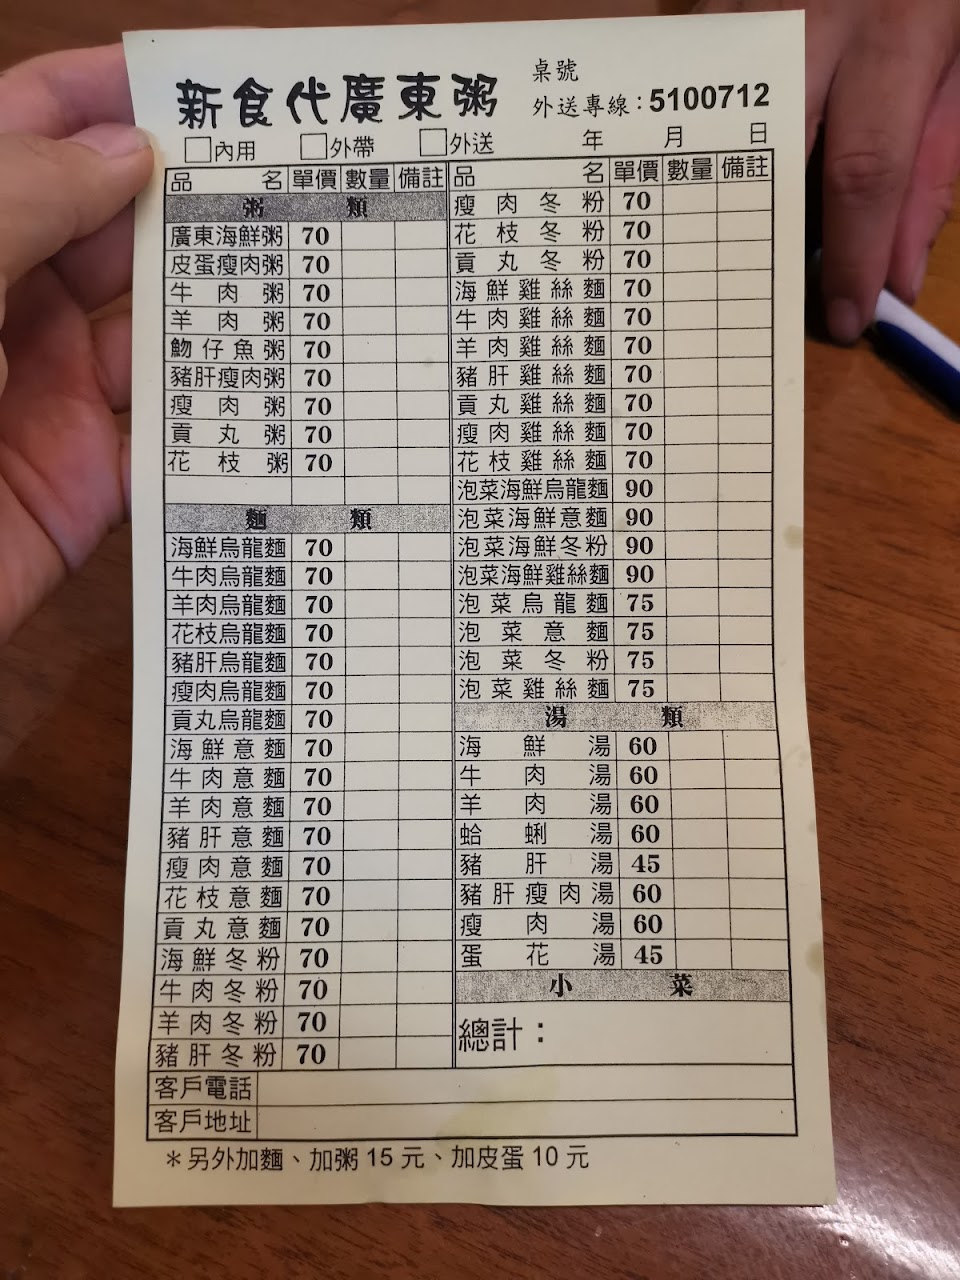 新食代廣東粥
桌號
外送專線：5100712
□內用 □外帶 □外送 年 月 日
品名 單價 數量 備註
粥類
廣東海鮮粥 70
皮蛋瘦肉粥 70
牛肉粥 70
羊肉粥 70
魩仔魚粥 70
豬肝瘦肉粥 70
瘦肉粥 70
貢丸粥 70
花枝粥 70
麵類
海鮮烏龍麵 70
牛肉烏龍麵 70
羊肉烏龍麵 70
花枝烏龍麵 70
豬肝烏龍麵 70
瘦肉烏龍麵 70
貢丸烏龍麵 70
海鮮意麵 70
牛肉意麵 70
羊肉意麵 70
豬肝意麵 70
瘦肉意麵 70
花枝意麵 70
貢丸意麵 70
海鮮冬粉 70
牛肉冬粉 70
羊肉冬粉 70
豬肝冬粉 70
品名 單價 數量 備註
瘦肉冬粉 70
花枝冬粉 70
貢丸冬粉 70
海鮮雞絲麵 70
牛肉雞絲麵 70
羊肉雞絲麵 70
豬肝雞絲麵 70
貢丸雞絲麵 70
瘦肉雞絲麵 70
花枝雞絲麵 70
泡菜海鮮烏龍麵 90
泡菜海鮮意麵 90
泡菜海鮮冬粉 90
泡菜海鮮雞絲麵 90
泡菜烏龍麵 75
泡菜意麵 75
泡菜冬粉 75
泡菜雞絲麵 75
湯類
海鮮湯 60
牛肉湯 60
羊肉湯 60
蛤蜊湯 60
豬肝湯 45
豬肝瘦肉湯 60
瘦肉湯 60
蛋花湯 45
小菜
總計：
客戶電話
客戶地址
＊另外加麵、加粥15元、加皮蛋10元